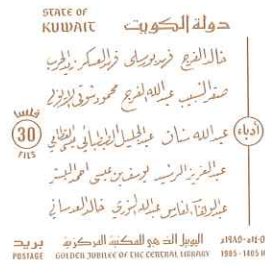 STATE OF
KUWAIT
دولة الكويت
خالد الفرج فهد بورسلي فهد العسكر زيد الحرب
صقر الشبيب عبدالله الفرج محمود شوقي الأيوبي
فلساً
30
FILS
عبدالله سنان عبدالجليل الطبطبائي
أدباء
عبدالعزيز الرشيد يوسف بن عيسى أحمد البشر
خالد العدساني
بريد
POSTAGE
اليوبيل الذهبي للمكتبة المركزية
GOLDEN JUBILEE OF THE CENTRAL LIBRARY
1985 - 1405 H